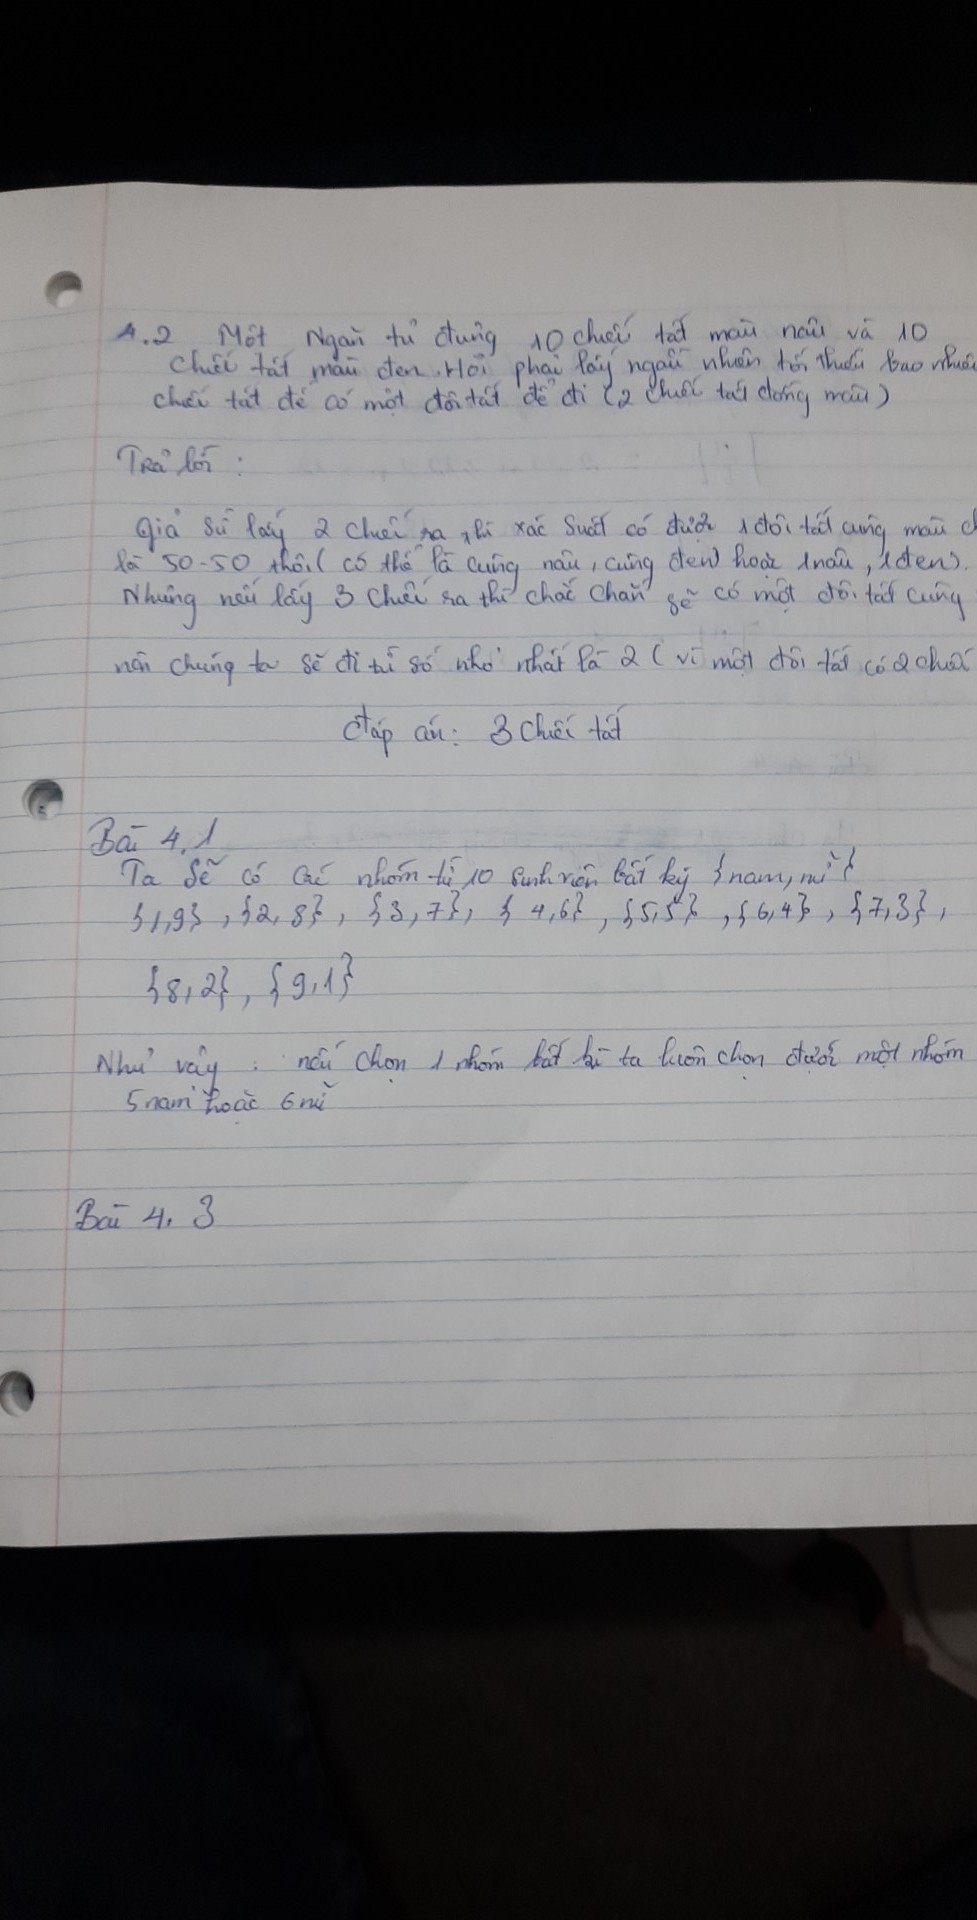 4.2 Một Ngăn tủ đựng 10 chiếc tất màu nâu và 10
chiếc tất màu đen. Hỏi phải lấy ngẫu nhiên tối thiểu bao nhiêu
chiếc tất để có một đôi tất để đi (2 chiếc tất đồng màu)
Trả lời:
Giả sử lấy 2 chiếc ra thì xác suất có được 1 đôi tất cùng màu ch
là 50-50 thôi (có thể là cùng nâu, cùng đen hoặc 1 nâu, 1 đen).
Nhưng nếu lấy 3 chiếc ra thì chắc chắn sẽ có một đôi tất cùng
nên chúng ta sẽ đi từ số nhỏ nhất là 2 (vì một đôi tất có 2 chiếc
Đáp án: 3 chiếc tất
Bài 4.1
Ta sẽ có các nhóm từ 10 sinh viên bất kỳ {nam, nữ}
{1,9}, {2,8}, {3,7}, {4,6}, {5,5}, {6,4}, {7,3},
{8,2}, {9,1}
Như vậy: nếu chọn 1 nhóm bất kì ta luôn chọn được một nhóm
5 nam hoặc 6 nữ
Bài 4.3